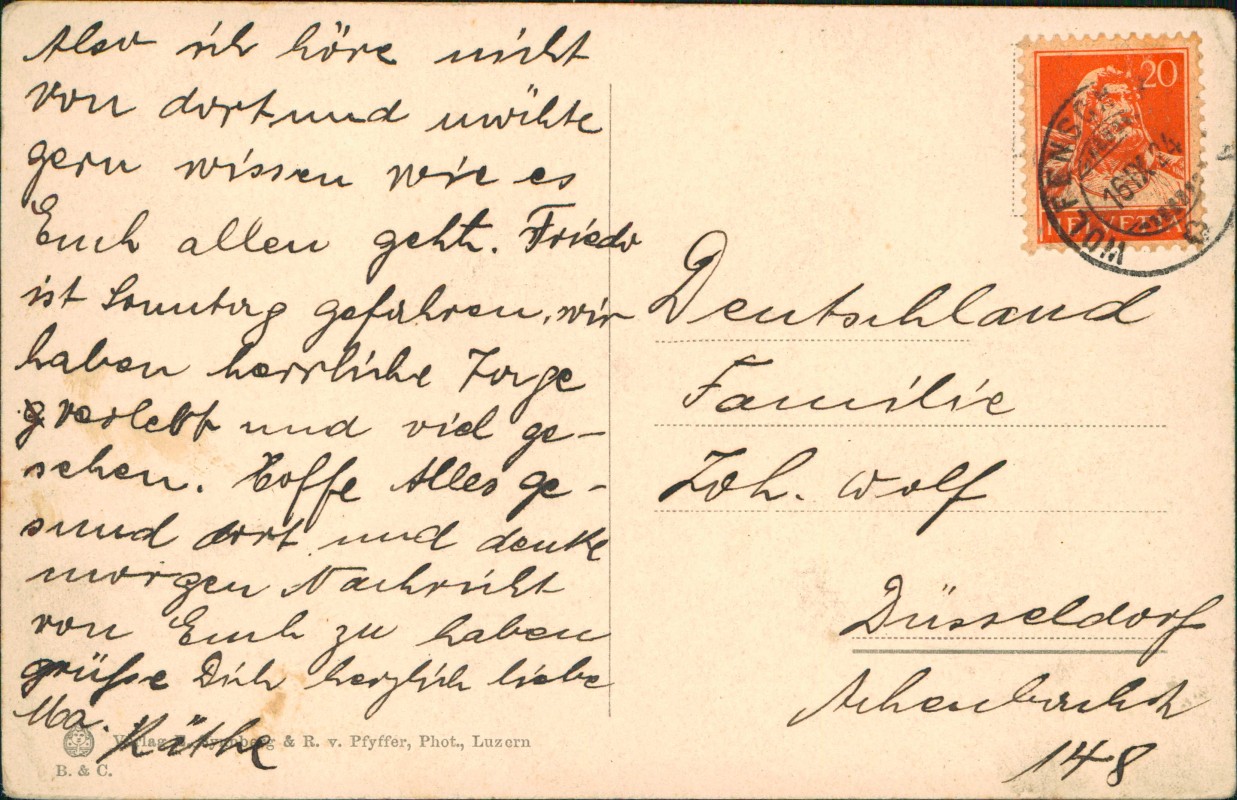 Also ich höre nicht
von dort und möchte
gern wissen wie es
Euch allen geht. Frieda
ist Sonntag gefahren, wir
haben herrliche Tage
verlebt und viel ge-
sehen. Hoffe Alles ge-
sund dort und denke
morgen Nachricht
von Euch zu haben
grüße Dich herzlich liebe
Ma. Käthe
Verlag & R. v. Pfyffer, Phot., Luzern
B. & C.
20
HELVETIA
16.IX.24
Deutschland
Familie
Joh. Wolf
Düsseldorf
Achenbachstr
148